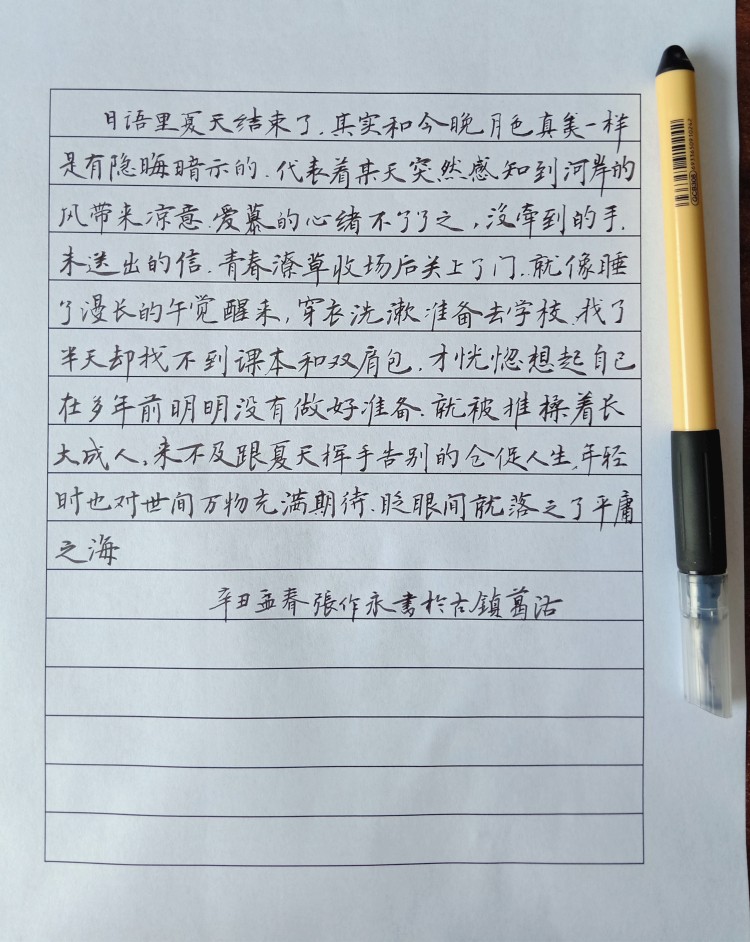 日语里夏天结束了.其实和今晚月色真美一样
是有隐晦暗示的.代表着某天突然感知到河岸的
风带来凉意.爱慕的心绪不了了之,没牵到的手.
未送出的信.青春潦草收场后关上了门.就像睡
了漫长的午觉醒来,穿衣洗漱准备去学校.找了
半天却找不到课本和双肩包.才恍惚想起自己
在多年前明明没有做好准备.就被推搡着长
大成人,来不及跟夏天挥手告别的仓促人生.年轻
时也对世间万物充满期待.眨眼间就落之了平庸
之海
辛丑孟春張作永書於古鎮葛沽